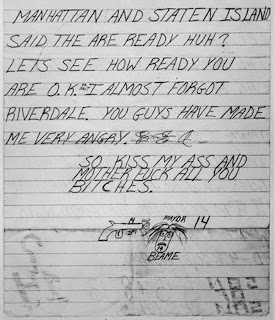 MANHATTAN AND STATEN ISLAND
SAID THE ARE READY HUH?
LETS SEE HOW READY YOU
ARE O.K. I ALMOST FORGOT
RIVERDALE. YOU GUYS HAVE MADE
ME VERY ANGRY.
SO KISS MY ASS AND
MOTHER FUCK ALL YOU
BITCHES.
14 MAYOR 14
BEAME